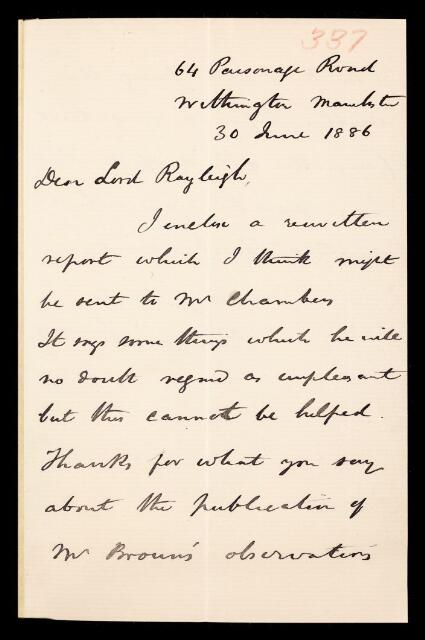 337
64 Parsonage Road
Withington Manchester
30 June 1886
Dear Lord Rayleigh,
I enclose a rewritten
report which I think might
be sent to Mr Chambers
It says some things which he will
no doubt regard as unpleasant
but this cannot be helped.
Thanks for what you say
about the publication of
Mr Broun's observations